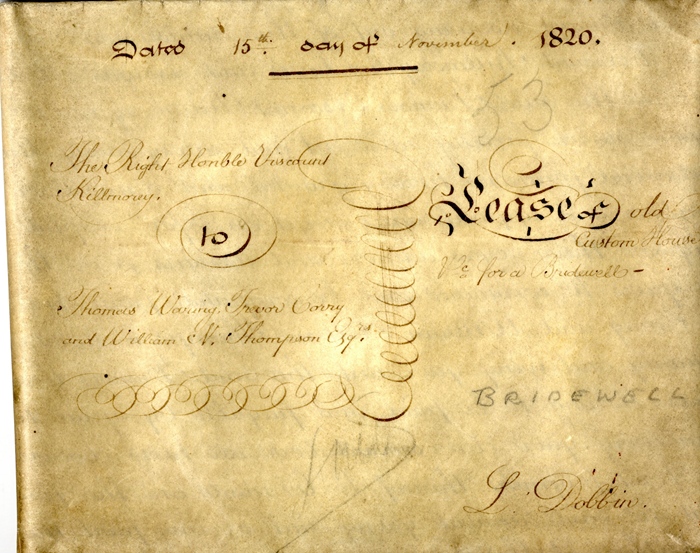 Dated 15th. day of November. 1820.
53
The Right Honble Viscount
Killmorey.
to
Thomas Waring, Trevor Corry
and William N. Thompson Esqrs.
Lease of old
Custom House
&c for a Bridewell -
BRIDEWELL
L. Dobbin.